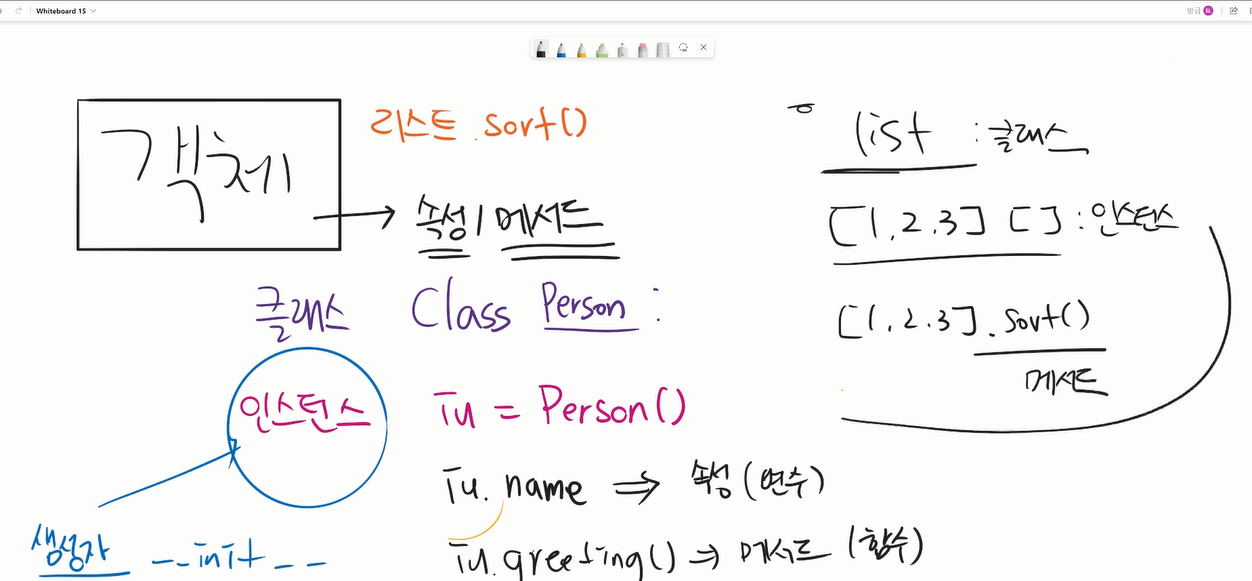 Whiteboard 15
방금 EL
객체
리스트.sort()
→ 속성/메서드
클래스 Class Person :
인스턴스 iu = Person()
iu.name ⇒ 속성(변수)
생성자 __init__
iu.greeting() → 메서드 (함수)
list : 클래스
[1,2,3] [] : 인스턴스
[1,2,3].sort()
메서드